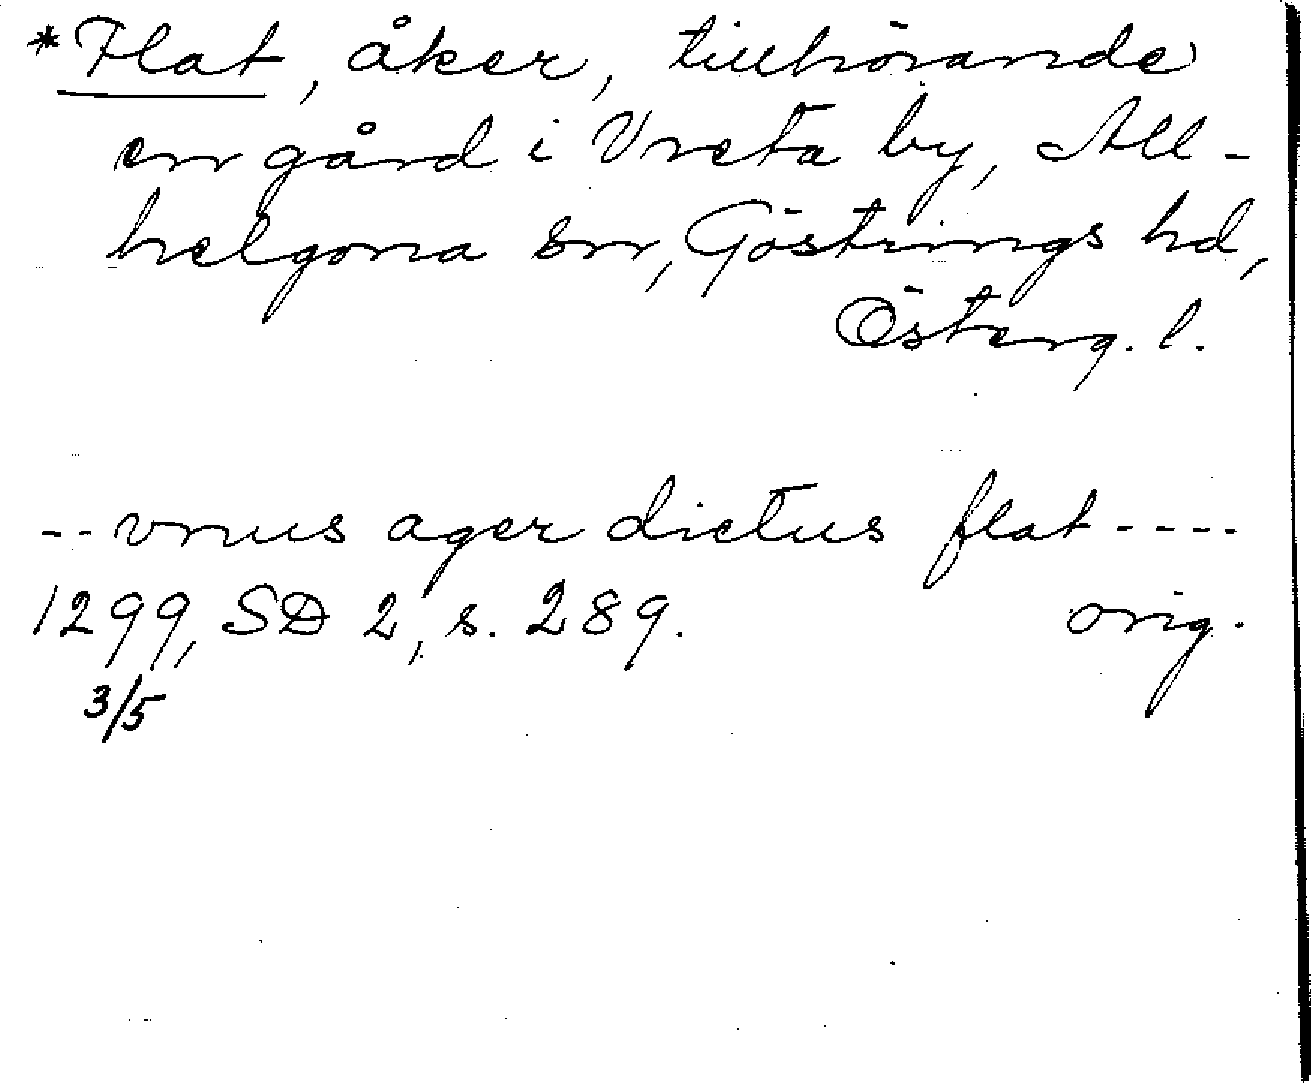 *Flat, åker, tillhörande
en gård i Vreta by, All-
helgona sn, Göstrings hd,
Österg. l.
-- vnus ager dictus flat ----
1299, SD 2, s. 289. orig.
3/5